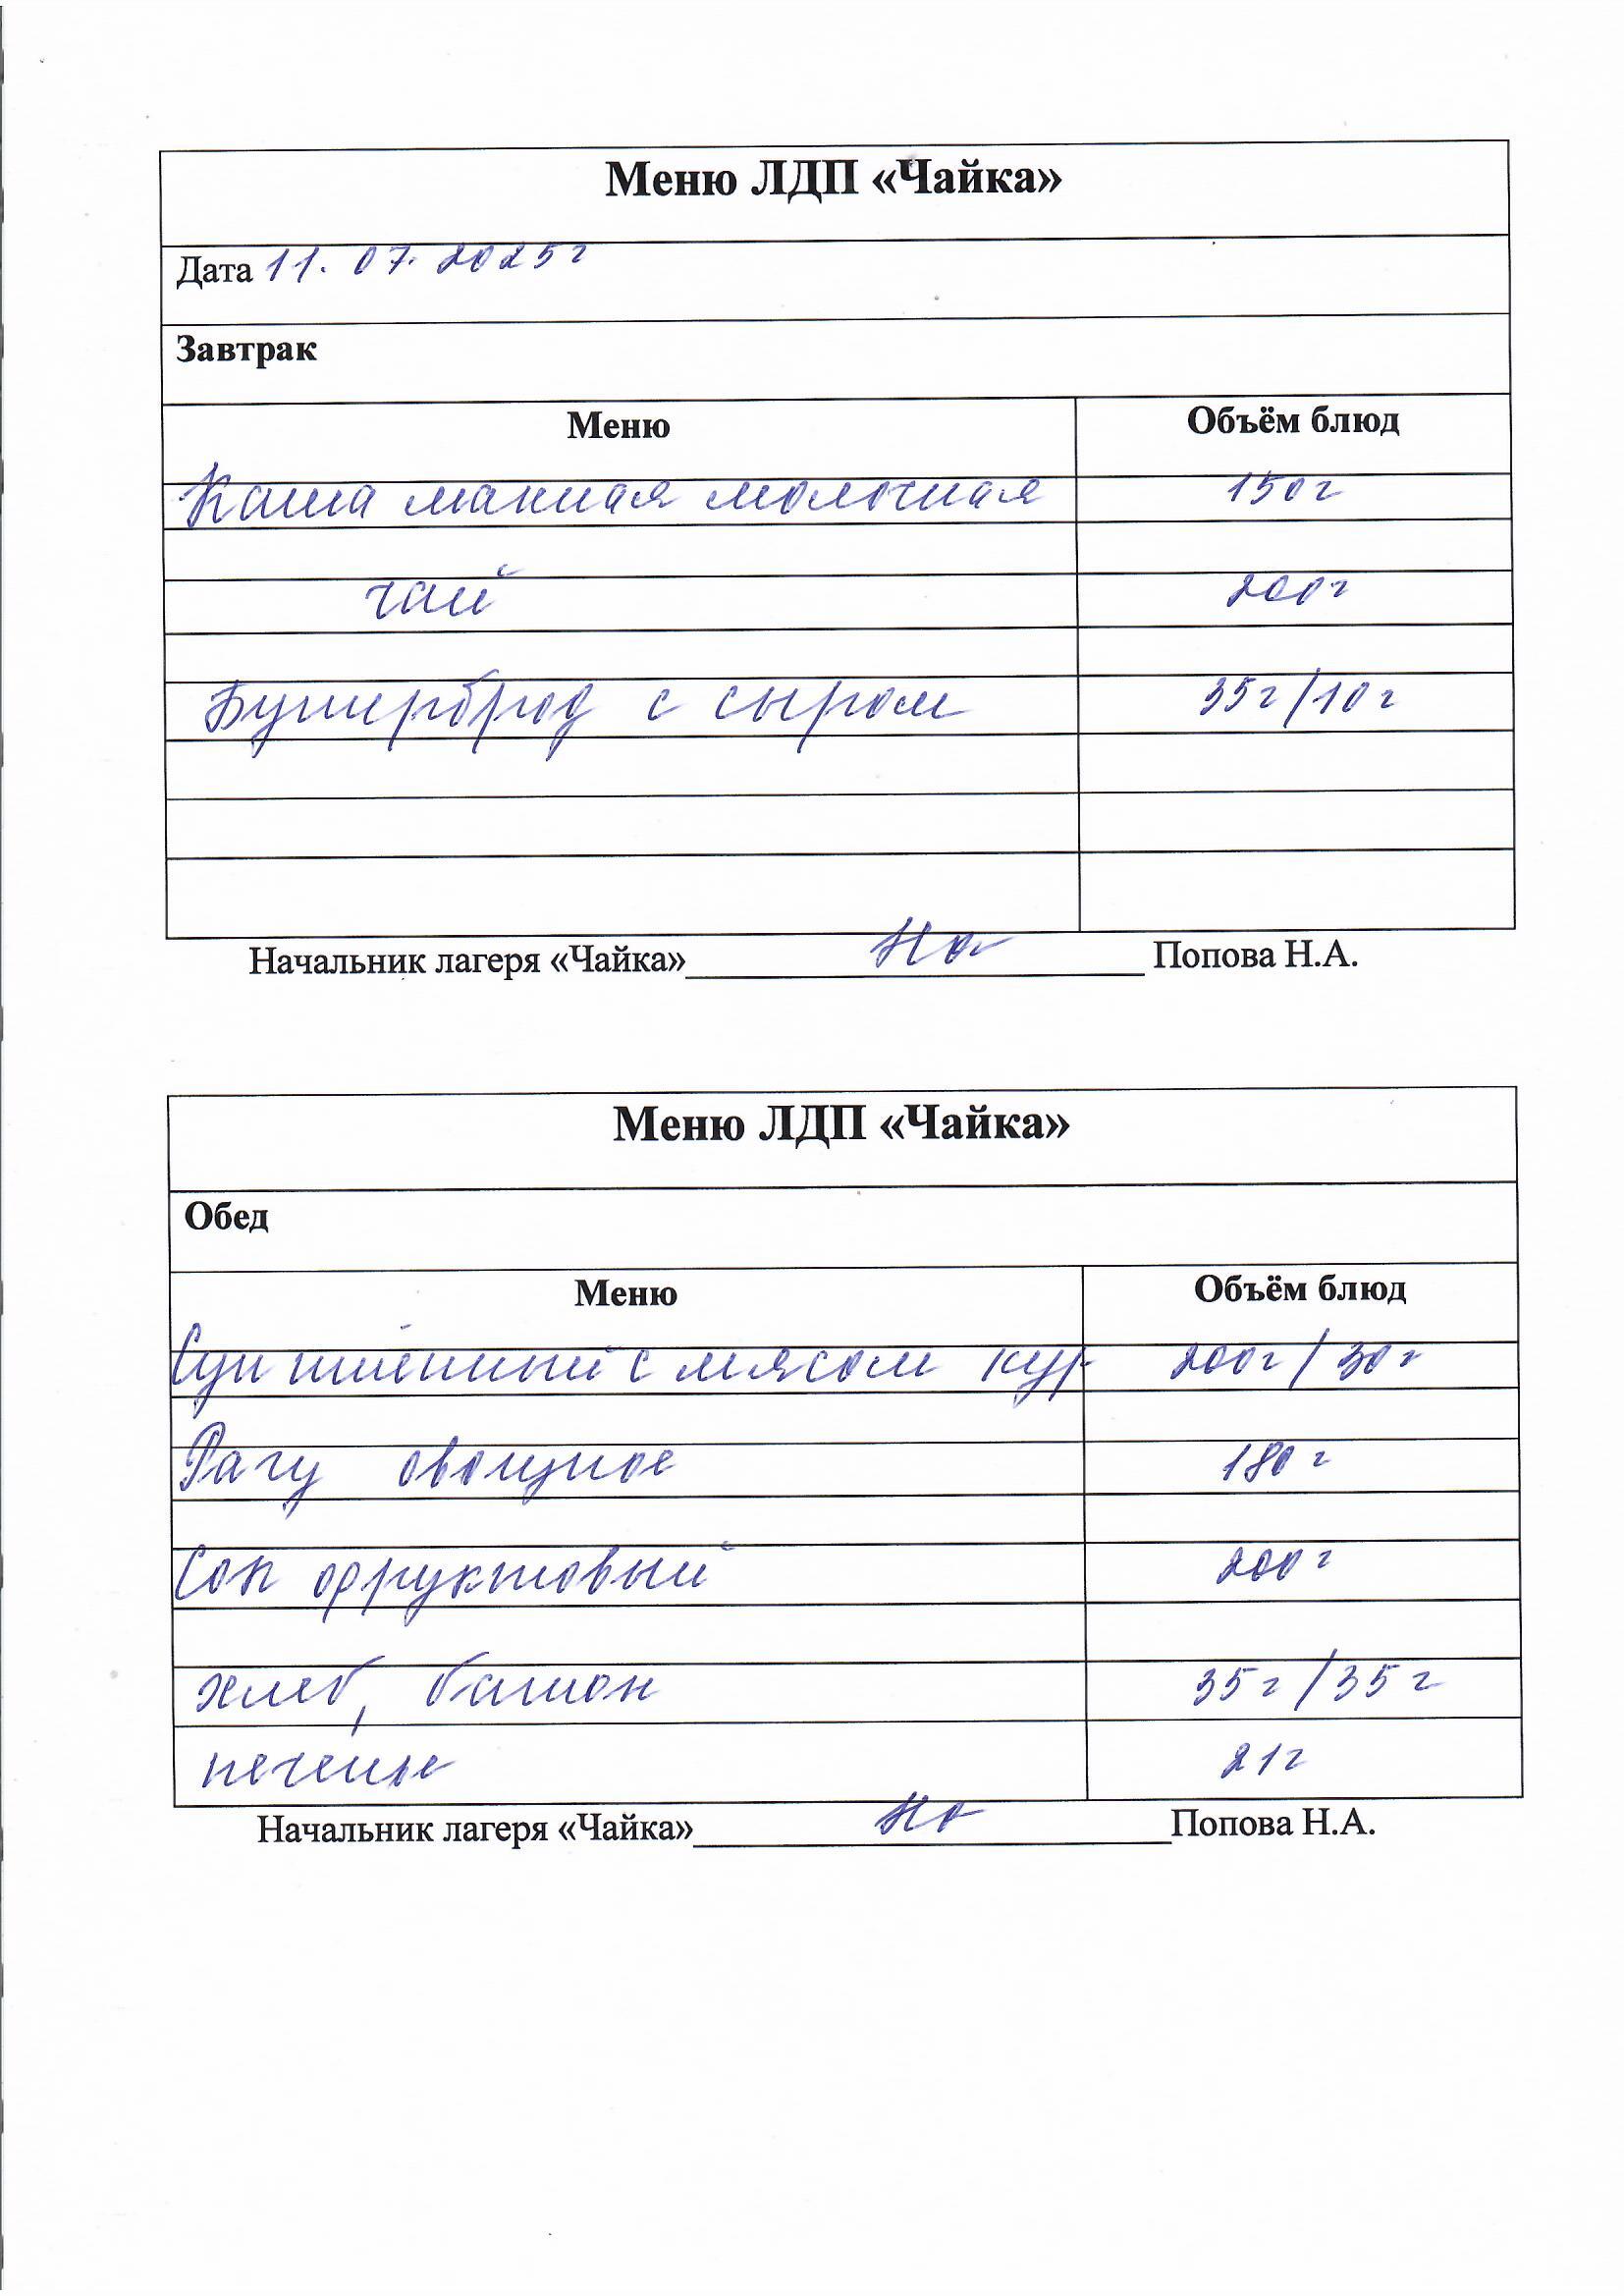 Меню ЛДП «Чайка»
Дата 11.07.2025г
Завтрак
Меню Объём блюд
Каша манная молочная 150г
чай 200г
Бутерброд с сыром 35г/10г
Начальник лагеря «Чайка» Попова Н.А.
Меню ЛДП «Чайка»
Обед
Меню Объём блюд
Суп пшённый с мясом кур 200г/30г
Рагу овощное 180г
Сок фруктовый 200г
хлеб, батон 35г/35г
печенье 21г
Начальник лагеря «Чайка» Попова Н.А.